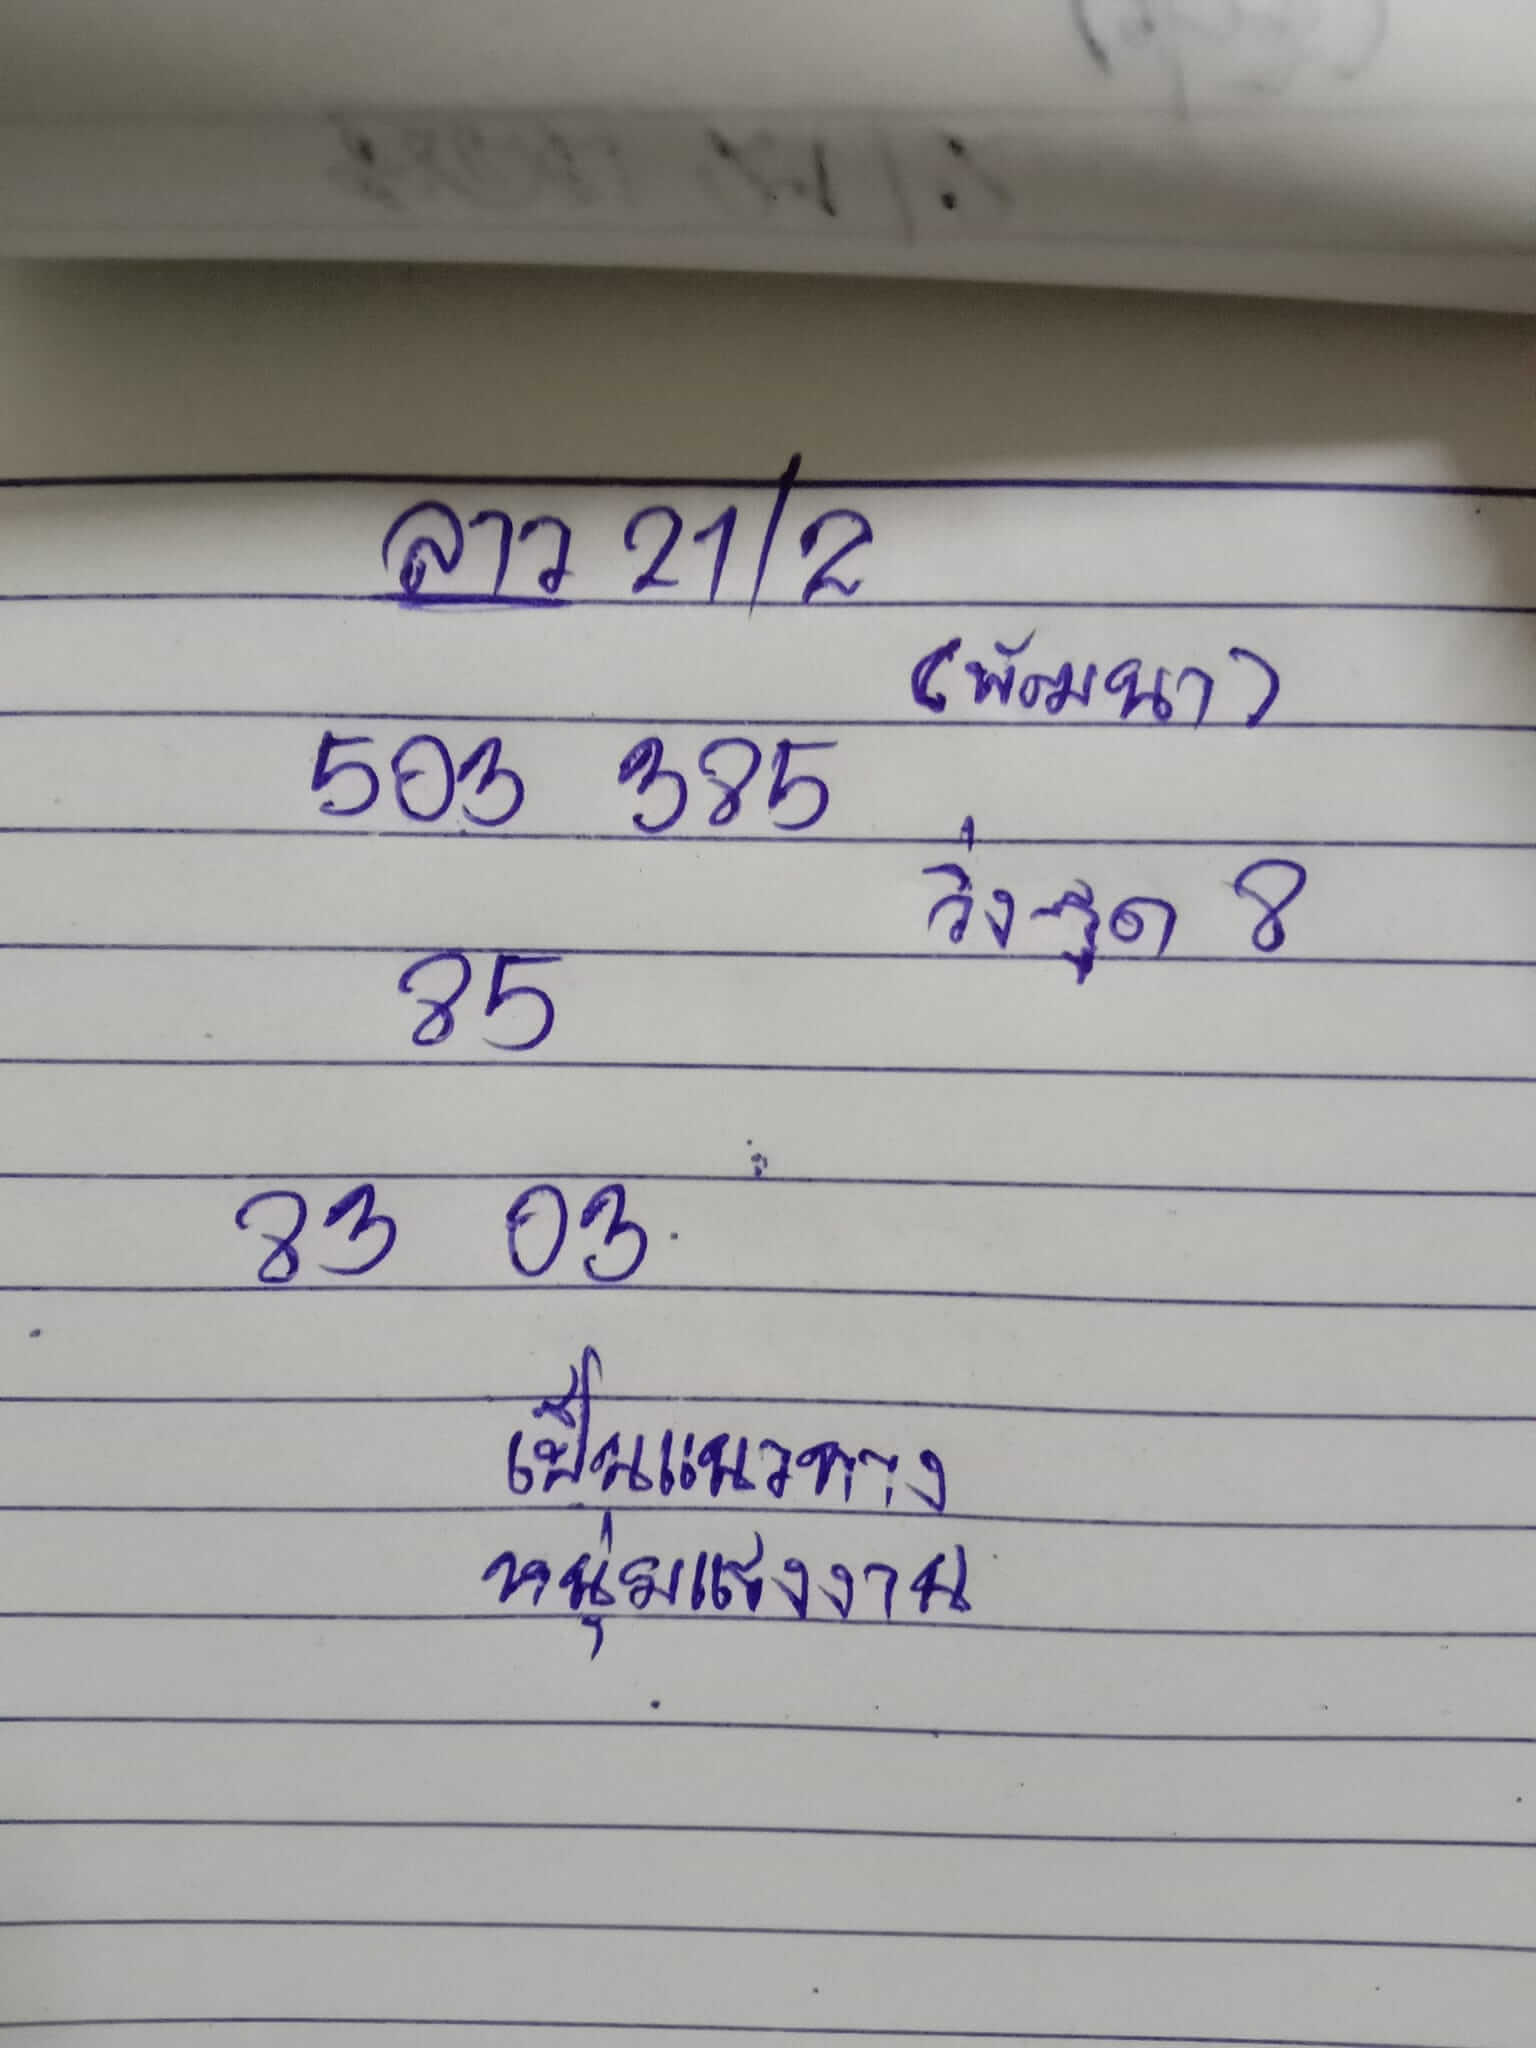 ลาว 21/2
(พัฒนา)
503 385
วิ่งรูด 8
85
83 03
เป็นแนวทาง
หนุ่มแรงงาน